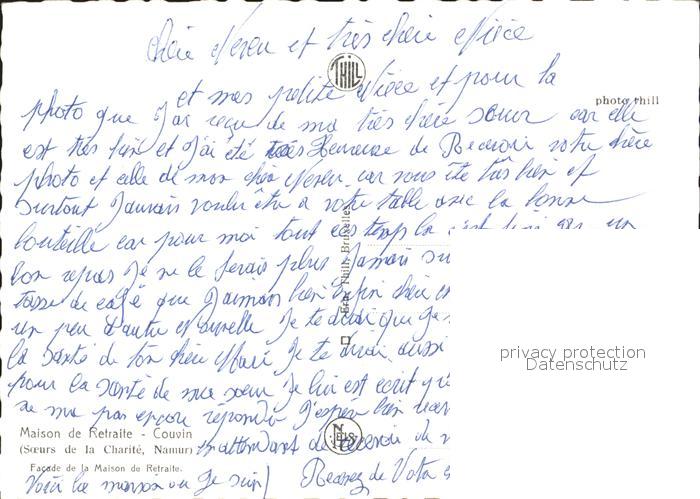 chère Neveu et très chère Nièce
THILL
et mes petite Nièce et pour la
photo thill
photo que J'ai reçu de ma très chère sœur car elle
est très bien et J'ai été très Heureuse de Recevoir votre chère
photo et celle de mon cher Neveu car vous ête très bien et
surtout J'aurais voulu être à votre table avec la bonne
bouteille car pour moi tout ces temp la c'est fini un
bon repas Je ne le ferais plus Jamais
tasse de café que J'aimais bien Enfin chère
un peu d'autre Nouvelle Je te dirai que
la santé de ton chère Mari Je te dirai aussi
pour la santé de ma sœur Je lui est ecrit
ne ma pas encore répondu J'espère bien
Ern. Thill, Bruxelles
NELS
Maison de Retraite - Couvin
(Sœurs de la Charité, Namur) en attendant de recevoir de
Façade de la Maison de Retraite.
Voici la maison ou Je suis Recevez de Votre
privacy protection
Datenschutz